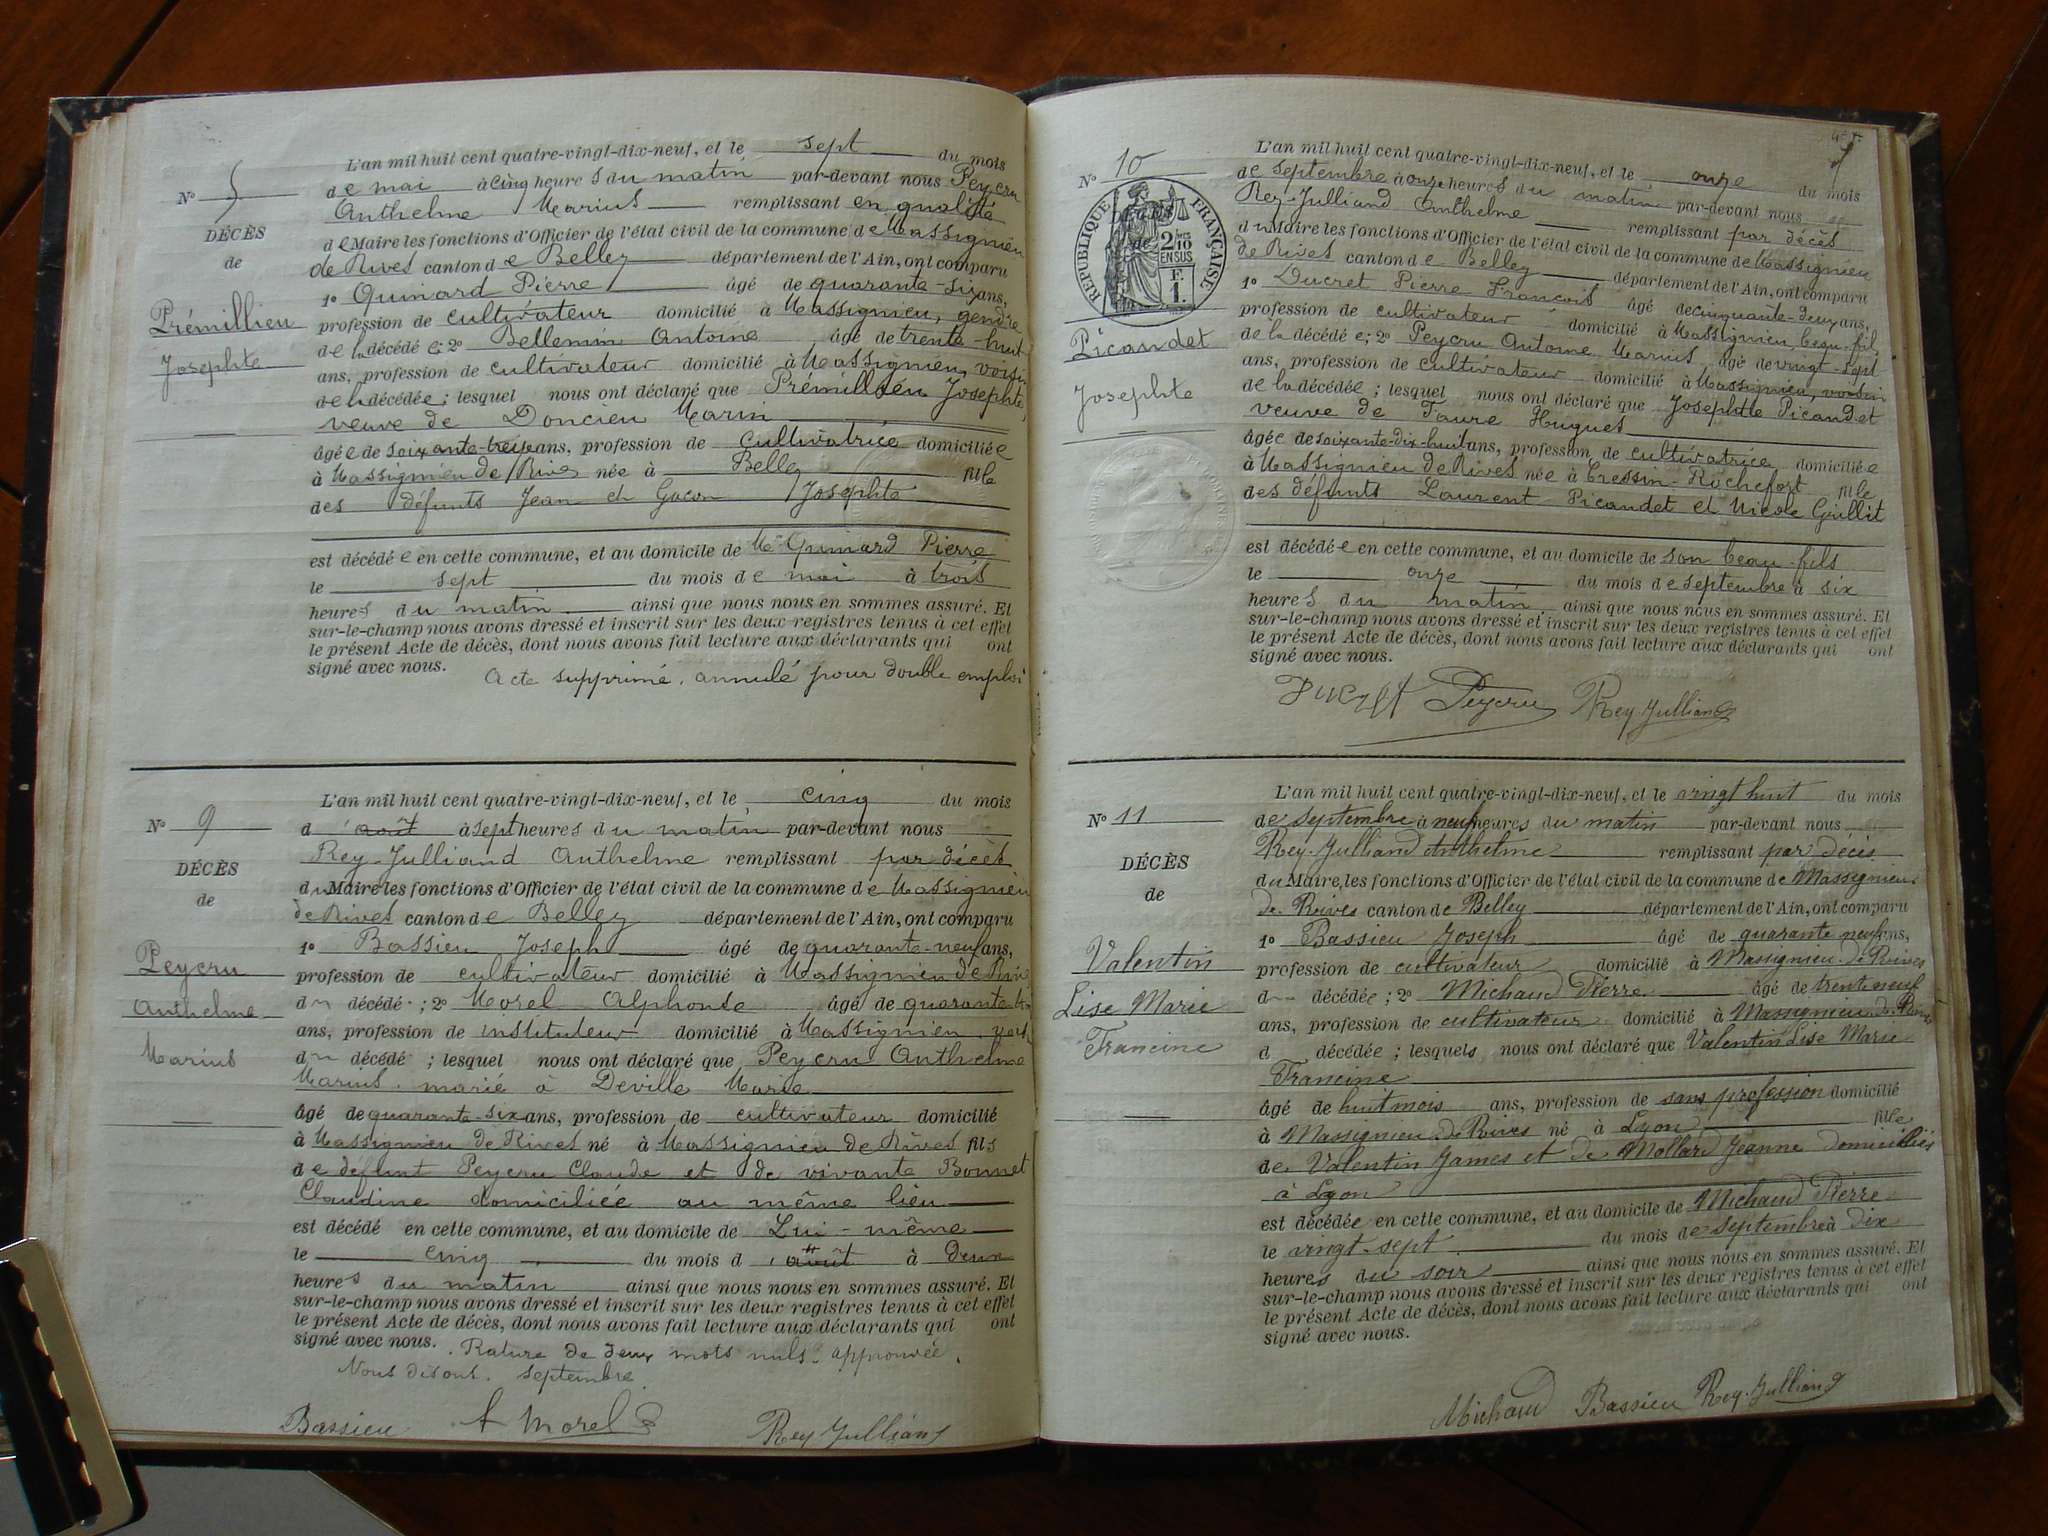 No 5
DÉCÈS
de
Prémillieu
Josephte
L'an mil huit cent quatre-vingt-dix-neuf, et le sept du mois
de mai à cinq heures du matin par-devant nous Peycru
Anthelme Marius remplissant en qualité
de Maire les fonctions d'Officier de l'état civil de la commune de Massignieu
de Rives canton de Belley département de l'Ain, ont comparu
1o Quinard Pierre âgé de quarante-six ans,
profession de cultivateur domicilié à Massignieu, gendre
de la décédée; 2o Bellemin Antoine âgé de trente-huit
ans, profession de cultivateur domicilié à Massignieu, voisin
de la décédée; lesquel nous ont déclaré que Prémillieu Josephte,
veuve de Doncieu Marin
âgée de soixante-treize ans, profession de cultivatrice domiciliée
à Massignieu de Rives née à Belley fille
des défunts Jean et Gacon Josephte
est décédée en cette commune, et au domicile de Mr Quinard Pierre
le sept du mois de mai à trois
heures du matin ainsi que nous nous en sommes assuré. Et
sur-le-champ nous avons dressé et inscrit sur les deux registres tenus à cet effet
le présent Acte de décès, dont nous avons fait lecture aux déclarants qui ont
signé avec nous.
Acte supprimé, annulé pour double emploi
No 9
DÉCÈS
de
Peycru
Anthelme
Marius
L'an mil huit cent quatre-vingt-dix-neuf, et le cinq du mois
d'août à sept heures du matin par-devant nous
Rey-Julliand Anthelme remplissant par décès
du Maire les fonctions d'Officier de l'état civil de la commune de Massignieu
de Rives canton de Belley département de l'Ain, ont comparu
1o Bassieu Joseph âgé de quarante-neuf ans,
profession de cultivateur domicilié à Massignieu de Rives
du décédé; 2o Morel Alphonse âgé de quarante
ans, profession de instituteur domicilié à Massignieu
du décédé; lesquel nous ont déclaré que Peycru Anthelme
Marius, marié à Deville Marie
âgé de quarante-six ans, profession de cultivateur domicilié
à Massignieu de Rives né à Massignieu de Rives fils
de défunt Peycru Claude et de vivante Bonnet
Claudine domiciliée au même lieu
est décédé en cette commune, et au domicile de Lui-même
le cinq du mois d'août à deux
heures du matin ainsi que nous nous en sommes assuré. Et
sur-le-champ nous avons dressé et inscrit sur les deux registres tenus à cet effet
le présent Acte de décès, dont nous avons fait lecture aux déclarants qui ont
signé avec nous. Rature de deux mots nuls approuvée.
Nous disons. septembre.
Bassieu A Morel Rey Julliand
No 10
RÉPUBLIQUE FRANÇAISE
2 10
EN SUS
F.
1.
Picandet
Josephte
L'an mil huit cent quatre-vingt-dix-neuf, et le onze du mois
de septembre à onze heures du matin par-devant nous
Rey-Julliand Anthelme remplissant par décès
du Maire les fonctions d'Officier de l'état civil de la commune de Massignieu
de Rives canton de Belley département de l'Ain, ont comparu
1o Ducret Pierre François âgé de cinquante-deux ans,
profession de cultivateur domicilié à Massignieu, beau-fils
de la décédée; 2o Peycru Antoine Marius âgé de vingt-sept
ans, profession de cultivateur domicilié à Massignieu, voisin
de la décédée; lesquel nous ont déclaré que Josephte Picandet
veuve de Faure Hugues
âgée de soixante-dix-huit ans, profession de cultivatrice domiciliée
à Massignieu de Rives née à Cressin-Rochefort fille
des défunts Laurent Picandet et Nicole Guillit
est décédée en cette commune, et au domicile de son beau-fils
le onze du mois de septembre à six
heures du matin ainsi que nous nous en sommes assuré. Et
sur-le-champ nous avons dressé et inscrit sur les deux registres tenus à cet effet
le présent Acte de décès, dont nous avons fait lecture aux déclarants qui ont
signé avec nous.
Ducret Peycru Rey-Julliand
No 11
DÉCÈS
de
Valentin
Lise Marie
Francine
L'an mil huit cent quatre-vingt-dix-neuf, et le vingt huit du mois
de septembre à neuf heures du matin par-devant nous
Rey-Julliand Anthelme remplissant par décès
du Maire, les fonctions d'Officier de l'état civil de la commune de Massignieu
de Rives canton de Belley département de l'Ain, ont comparu
1o Bassieu Joseph âgé de quarante neuf ans,
profession de cultivateur domicilié à Massignieu de Rives
d décédée; 2o Michaud Pierre âgé de trente neuf
ans, profession de cultivateur domicilié à Massignieu de Rives
d décédée; lesquels nous ont déclaré que Valentin Lise Marie
Francine
âgé de huit mois ans, profession de sans profession domicilié
à Massignieu de Rives né à Lyon fille
de Valentin James et de Mollard Jeanne domiciliés
à Lyon
est décédée en cette commune, et au domicile de Michaud Pierre
le vingt-sept du mois de septembre à dix
heures du soir ainsi que nous nous en sommes assuré. Et
sur-le-champ nous avons dressé et inscrit sur les deux registres tenus à cet effet
le présent Acte de décès, dont nous avons fait lecture aux déclarants qui ont
signé avec nous.
Michaud Bassieu Rey-Julliand